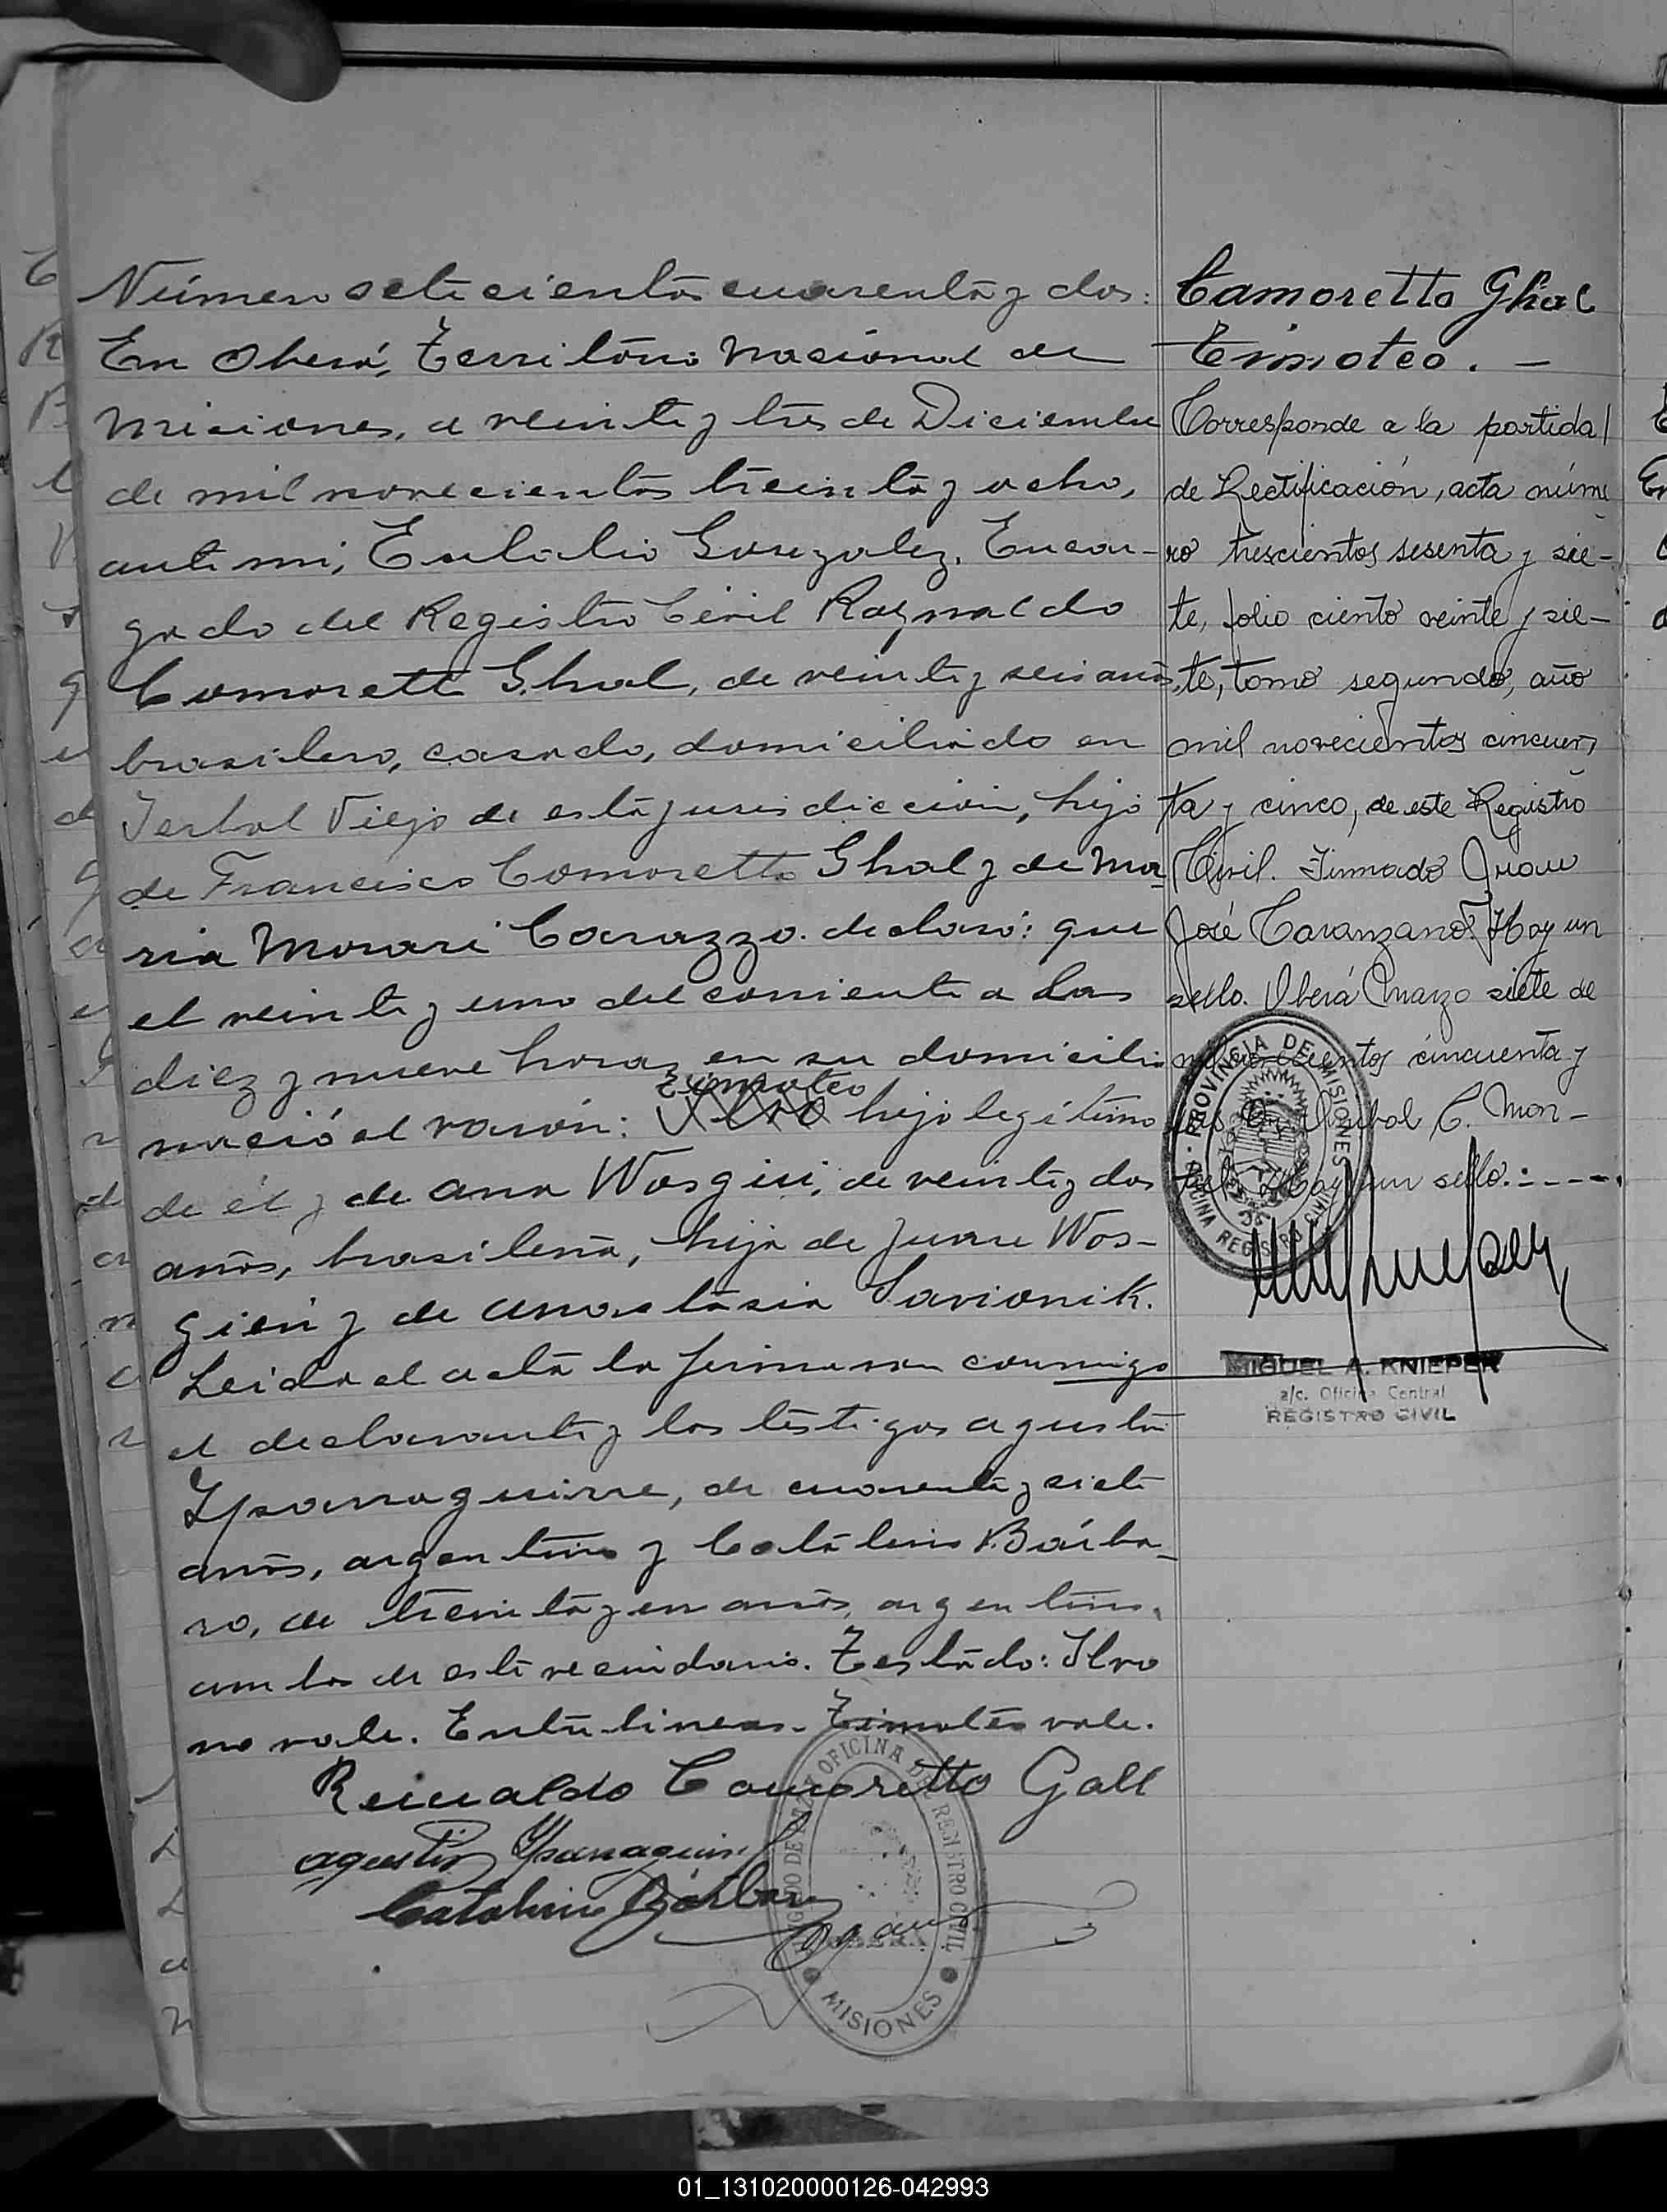 Número setecientos cuarenta y dos:
En Oberá, Territorio Nacional de
Misiones, a veinte y tres de Diciembre
de mil novecientos treinta y ocho,
ante mi, Eulalio Gonzalez, Encar-
gado del Registro Civil Raynaldo
Comoretto Ghal, de veinte y seis años,
brasilero, casado, domiciliado en
Yerbal Viejo de esta jurisdiccion, hijo
de Francisco Comoretto Ghal y de Ma-
ria Morari Carazzo. declaró: que
el veinte y uno del corriente a las
diez y nueve horas en su domicilio
Timoteo
nació el varón: Ilvo hijo legítimo
de él y de Ana Wosgiu, de veinte y dos
años, brasileña, hija de Juan Wos-
gien y de Anastasia Savionik.
Leida el acta la firmaron conmigo
el declarante y los testigos Agustin
Yparraguirre, de cuarenta y siete
años, argentino y Catalino Bárba-
ro, de treinta y un años, argentino,
ambos de este vecindario. Testado: Ilvo
no vale. Entre lineas. Timoteo vale.
Reinaldo Comoretto Gall
Agustin Yparraguirre
Catalino Bárbaro
JUZGADO DE PAZ Y OFICINA DEL REGISTRO CIVIL
MISIONES
Camoretto Ghal
Timoteo. —
Corresponde a la partida
de Rectificación, acta núme
ro trescientos sesenta y sie-
te, folio ciento veinte y sie-
te, tomo segundo, año
mil novecientos cincuen
ta y cinco, de este Registro
Civil. Firmado Juan
José Taranzano. Hay un
sello. Oberá Marzo siete de
novecientos cincuenta y
C. Mon-
Hay un sello.:----.
PROVINCIA DE MISIONES
MIGUEL A. KNIEPER
a/c. Oficina Central
REGISTRO CIVIL
01_131020000126-042993